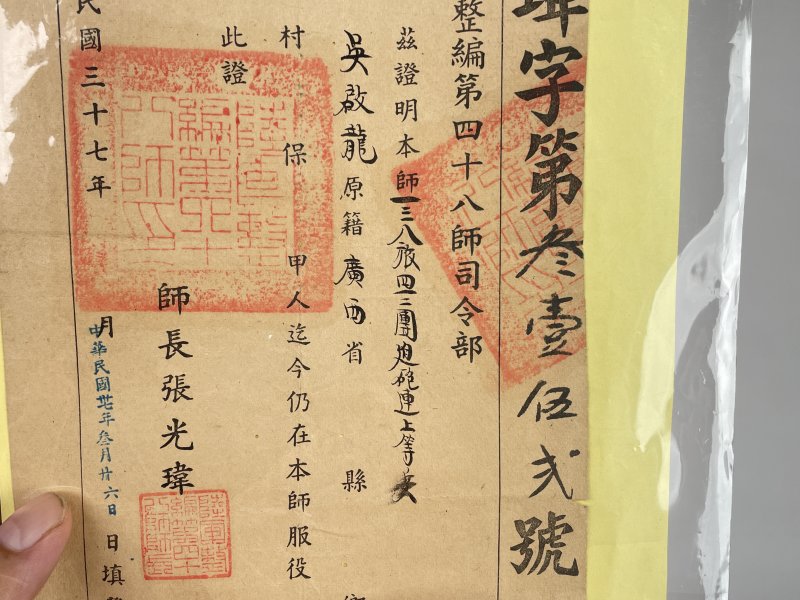 字第叁壹伍弍號
整編第四十八師司令部
茲證明本師一三八旅四一三團迫砲連上等兵
吳啟龍原籍廣西省 縣
村 保 甲人迄今仍在本師服役
此證
師長張光瑋
民國三十七年 月 日填
中華民國卅七年叁月廿六日